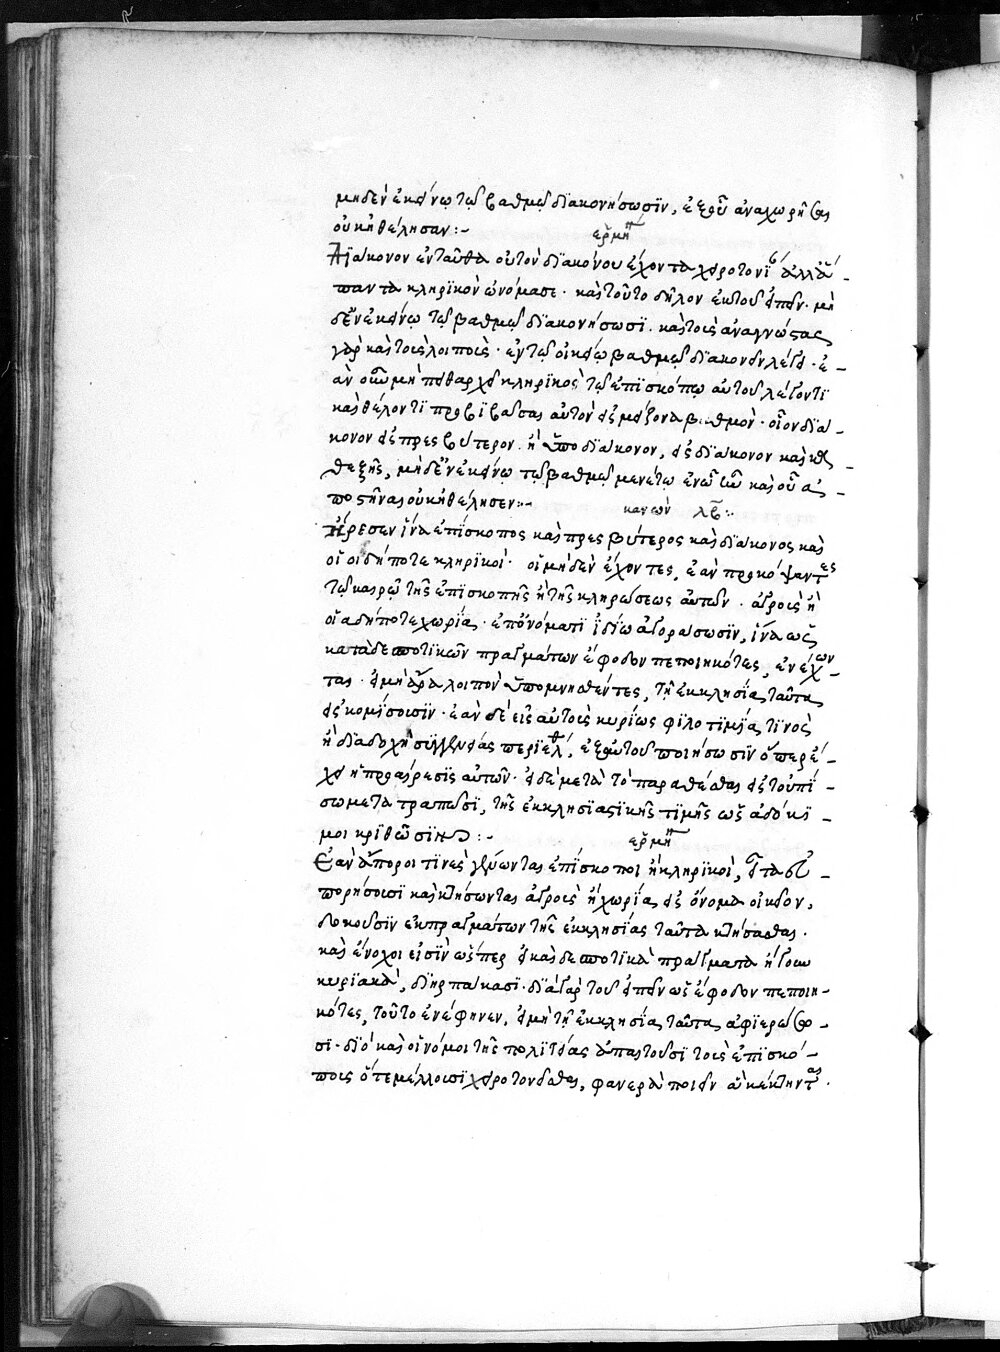 μηδὲν ἐκείνῳ τῷ βαθμῷ διακονήσωσιν, ἐξ οὗ ἀναχωρῆσαι
οὐκ ἠθέλησαν :-
ἑρμη
Διάκονον ἐνταῦθα οὐ τὸν διακόνου ἔχοντα χειροτονί ἀλλὰ
πάντα κληρικὸν ὠνόμασε · καὶ τοῦτο δῆλον ἐκ τοῦ εἰπεῖν · μη
δὲν ἐκείνῳ τῷ βαθμῷ διακονήσωσι. καὶ τοῖς ἀναγνώσταις
γὰρ καὶ τοῖς λοιποῖς · ἐν τῷ οἰκείῳ βαθμῷ διακονεῖν λέγει · ἐ
ὰν οὖν μὴ πειθαρχεῖ κληρικὸς τῷ ἐπισκόπῳ αὐτοῦ λέγοντι
καὶ θέλοντι προβιβάσαι αὐτὸν εἰς μείζονα βαθμὸν · οἷον διά
κονον εἰς πρεσβύτερον. ἢ ὑποδιάκονον, εἰς διάκονον καὶ καθ
θεξῆς, μηδὲν ἐκείνῳ τῷ βαθμῷ μενέτω ἐν ᾧ ἦν καὶ οὗ ἀ
ποστῆναι οὐκ ἠθέλησεν :-
κανὼν λβ :-
Ἤρεσεν ἵνα ἐπίσκοπος καὶ πρεσβύτερος καὶ διάκονος καὶ
οἱ οἱδήποτε κληρικοί · οἱ μηδὲν ἔχοντες, ἐὰν προκόψαντες
τῷ καιρῷ τῆς ἐπισκοπῆς ἢ τῆς κληρώσεως αὐτῶν · ἀγροὺς ἢ
οἱαδήποτε χωρία · ἐπ' ὀνόματι ἰδίῳ ἀγοράσωσιν, ἵνα ὡς
κατὰ δεσποτικῶν πραγμάτων ἔφοδον πεποιηκότες, ἐνέχων
ται · εἰ μὴ ἄρα λοιπὸν ὑπομνησθέντες, τῇ ἐκκλησίᾳ ταῦτα
εἰσκομίσοισιν · ἐὰν δὲ εἰς αὐτοὺς κυρίως φιλοτιμίᾳ τινὸς
ἢ διαδοχῇ συγγενείας περιέλθ, ἐξ αὐτοῦ ποιήσωσιν ὅπερ ἔ
χει ἡ προαίρεσις αὐτῶν · εἰ δὲ μετὰ τὸ παραθέσθαι εἰς τοὐπί
σω μετατραπῶσι, τῆς ἐκκλησιαστικῆς τιμῆς ὡς ἀδόκι
μοι κριθῶσιν :-
ἑρμη
Ἐὰν ἄποροι τινὲς γένωνται ἐπίσκοποι ἢ κληρικοὶ, εἶτα εὐ
πορήσοισι καὶ κτήσωνται ἀγροὺς ἢ χωρία, εἰς ὄνομα οἰκεῖον,
δοκοῦσιν ἐκ πραγμάτων τῆς ἐκκλησίας ταῦτα κτήσασθαι ·
καὶ ἔνοχοι εἰσὶν ὥσπερ εἰ καὶ δεσποτικὰ πράγματα ἤγουν
κυριακὰ, διηρπάκασι · διὰ γὰρ τοῦ εἰπεῖν ὡς ἔφοδον πεποιη
κότες, τοῦτο ἐνέφηνεν, εἰ μὴ τῇ ἐκκλησίᾳ ταῦτα ἀφιερώσω
σι · διὸ καὶ οἱ νόμοι τῆς πολιτείας ἀπαιτοῦσι τοὺς ἐπισκό
πους ὅτε μέλλουσι χειροτονεῖσθαι, φανερὰ ποιεῖν ἃ κέκτηνται ·